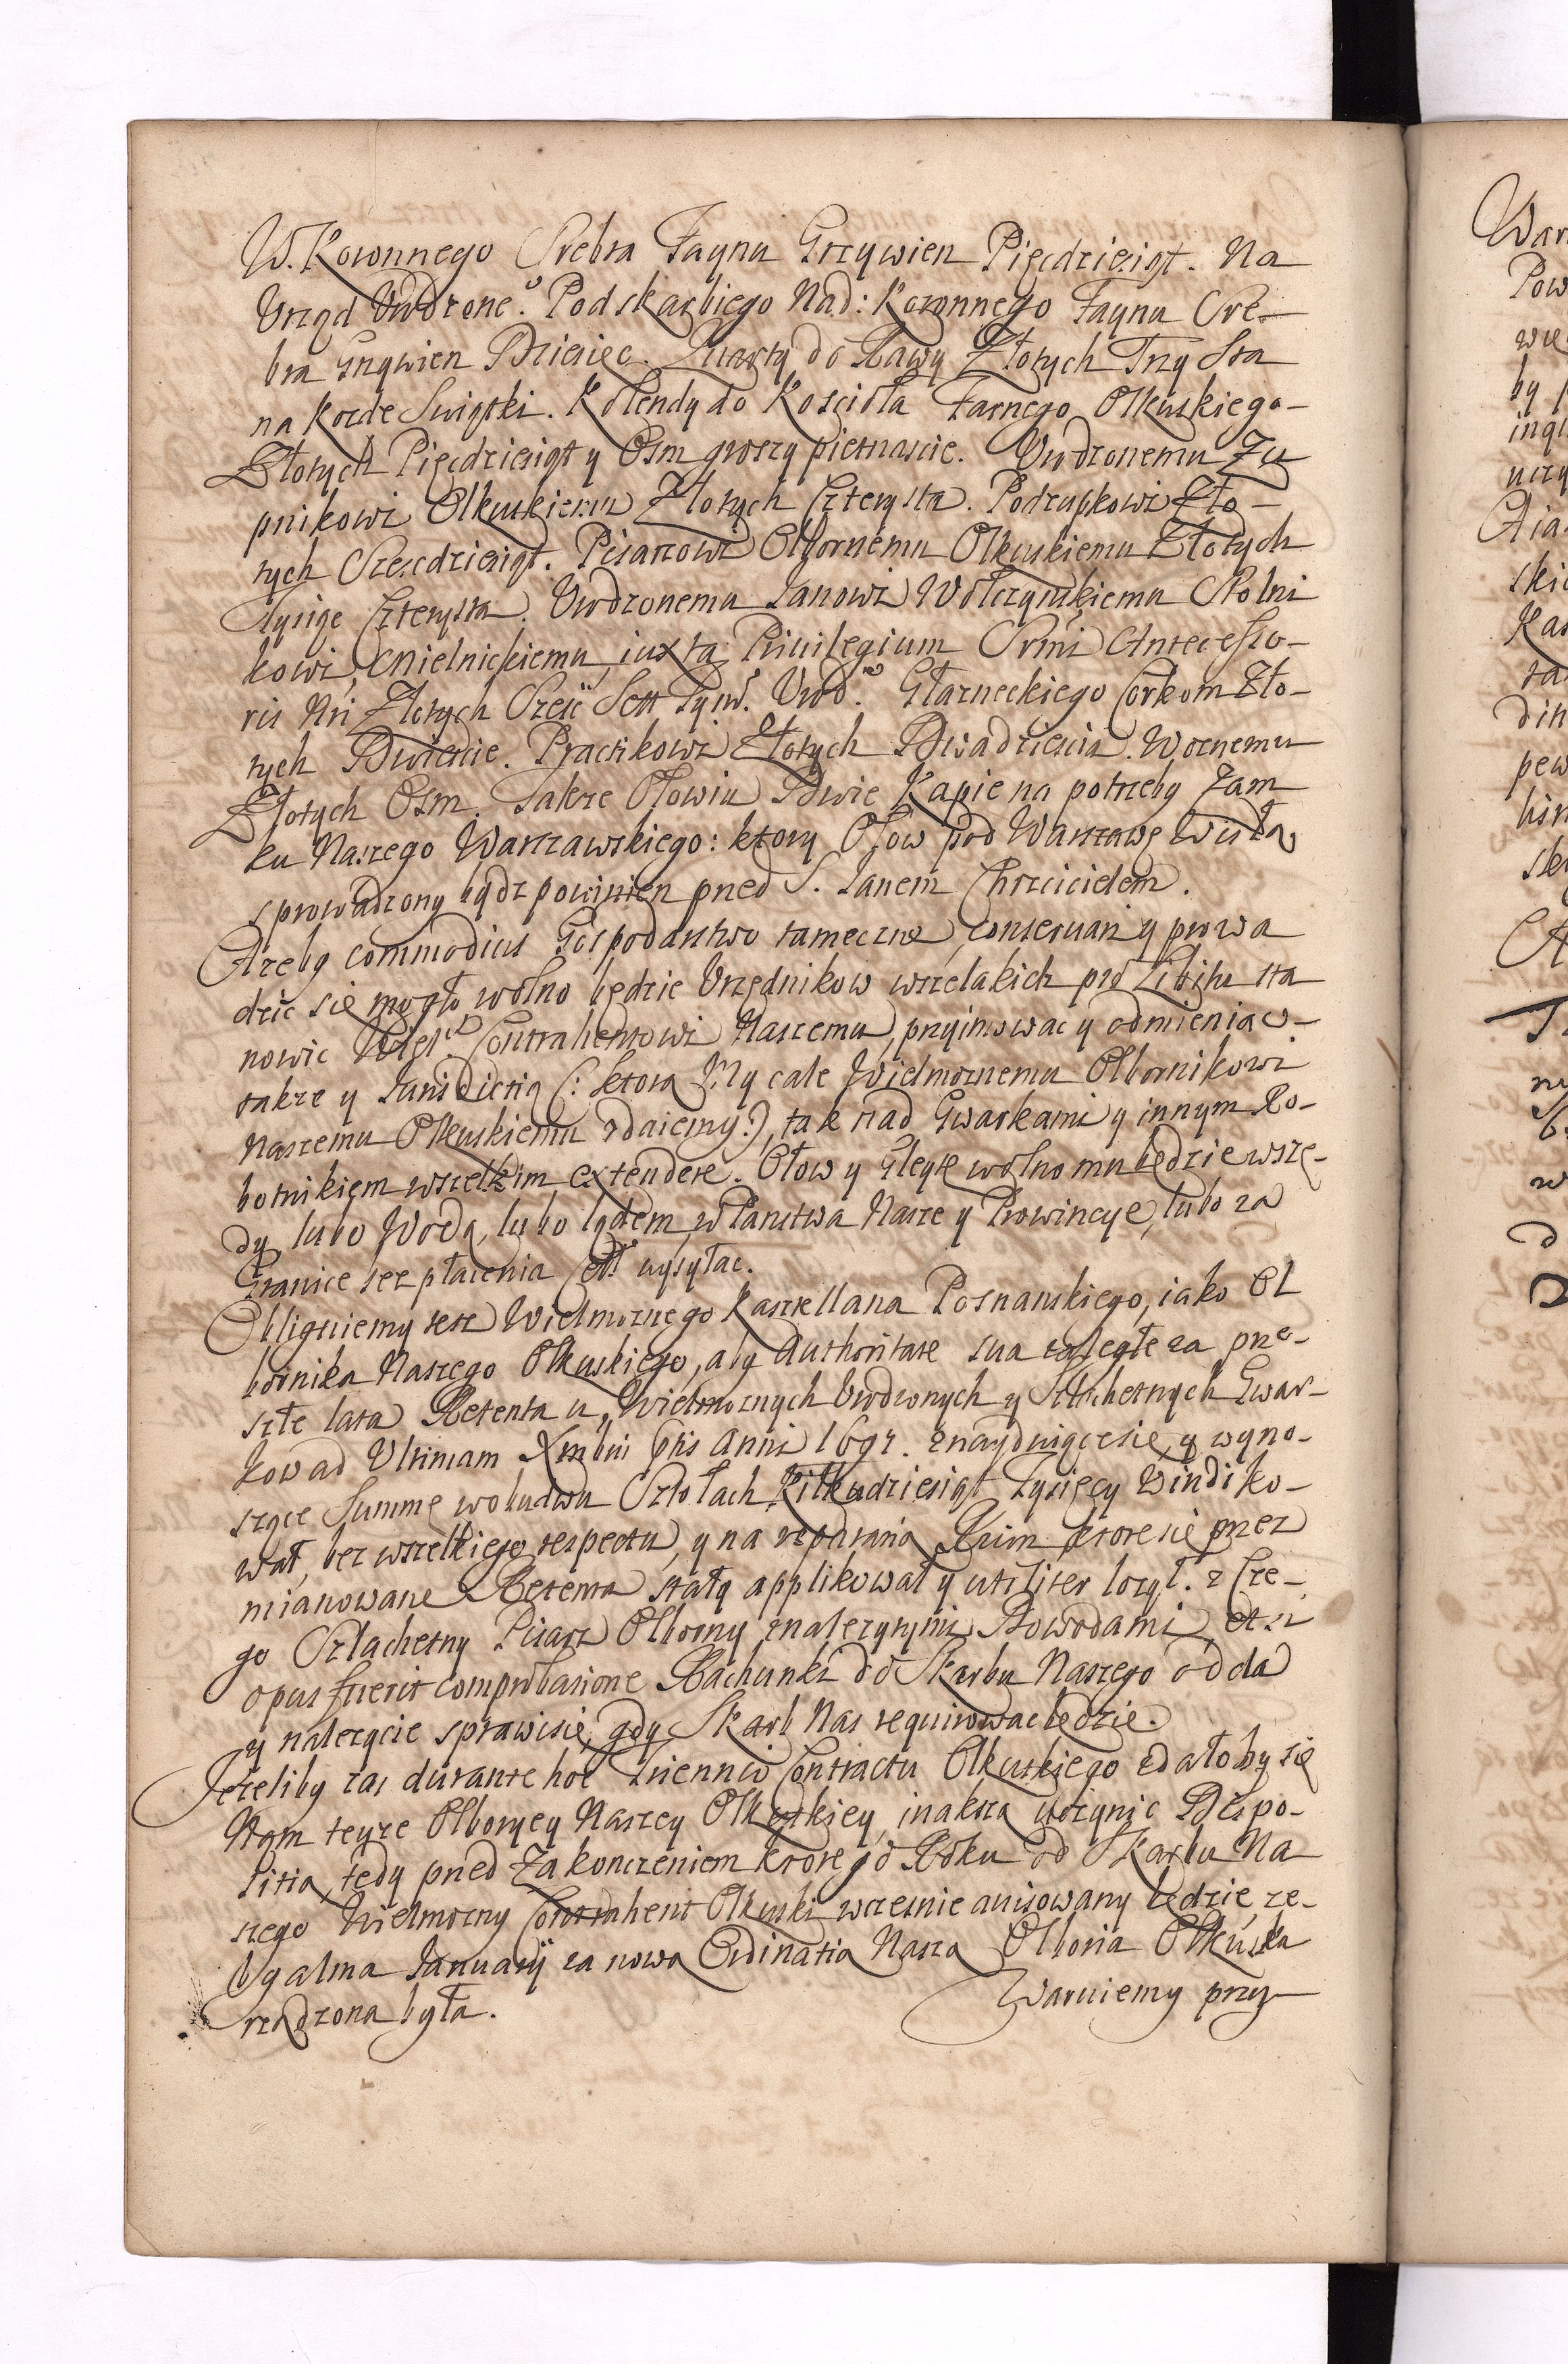 W. Koronnego Srebra Faynu Grzywien Pięcdziesiąt. Na
Urząd Urodzone͞o. Podskarbiego Nad: Koronnego Faynu Sre-
bra Grzywien Dziesięc. Quarty do Rawy Złotych Trzy Sta
na kozde Swiątki. Kolendy do Kościoła Farnego Olkuskiego-
Złotych Pięcdziesiąt y Osm groszy pietnascie. Urodzonemu Zu
pnikowi Olkuskiemu Złotych Czterysta. Podzupkowi Zło-
tych Szescdziesiąt. Pisarzowi Olbornemu Olkuskiemu Złotych
Tysiąc Czterysta. Urodzonemu Janowi Wolczynskiemu Stolni
kowi Mielnickiemu, iuxta Privilegium Srmi Antecesso-
ris Nri Złotych Szesc Sett Tynf. Urod. Czarneckiego Corkom Zło-
tych Dwiescie. Practikowi Złotych Dwadziescia. Woznemu
Złotych Osm. Takze Ołowiu Dwie Kapie na potrzeby Zam
ku Naszego Warszawskiego: ktory Ołow pod Warszawę Wisłą
sprowadzony bydz powinien przed S. Janem Chrzcicielem.
Azeby commodius Gospodarstwo tameczne conseruari y prowa
dzic się mogło wolno będzie Urzędnikow wszelakich pro Libitu sta
nowic Contrahentowi Naszemu, przyimowac y odmieniac-
takze y Jurisdictią (: ktorą My cale Wielmoznemu Olbornikowi
Naszemu Olkuskiemu zdaiemy:) tak nad Gwarkami y innym Ro-
botnikiem wszelkim extendere. Ołow y Gleytę wolno mu będzie wszę-
dy lubo Wodą, lubo lądem, w Panstwa Nasze y Prowincye, lubo za
Granice bez płacenia Cell wysyłac.
Obliguiemy tesz Wielmoznego Kasztellana Poznanskiego, iako Ol
bornika Naszego Olkuskiego, aby Authoritate sua zaległe za prze-
szłe lata Retenta u Wielmoznych Urodzonych y Szlachetnych Gwar-
kow ad Ultimam Xmbris Pntis Anni 1691. znayduiącesię, y wyno-
szące Summę w obudwu Sztołach kilkudziesiąt Tysięcy Windiko-
wał, bez wszelkiego respectu, y na reparatią Ruin ktore się przez
mianowane Retenta stały applikował y utiliter łozył. z Cze-
go Szlachetny Pisarz Olborny znalezytymi Dowodami et si
opus fuerit comprobatione Rachunki do Skarbu Naszego odda
y nalezycie sprawisię, gdy Skarb Nas requirowac będzie.
Jezeliby zas durante hoc Triennio Contractu Olkuskiego zdałoby się
Nam teyze Olborzey Naszey Olkuskiey, inaksza uczynic Dispo-
sitia, tedy przed Zakonczeniem ktorego Roku od Skarbu Na
szego Wielmozny Contrahent Olkuski wczesnie auisowany będzie, ze-
by a 1ma Januarij za nową Ordinatią Naszą Olboria Olkuska
rządzona była.
Waruiemy przy-